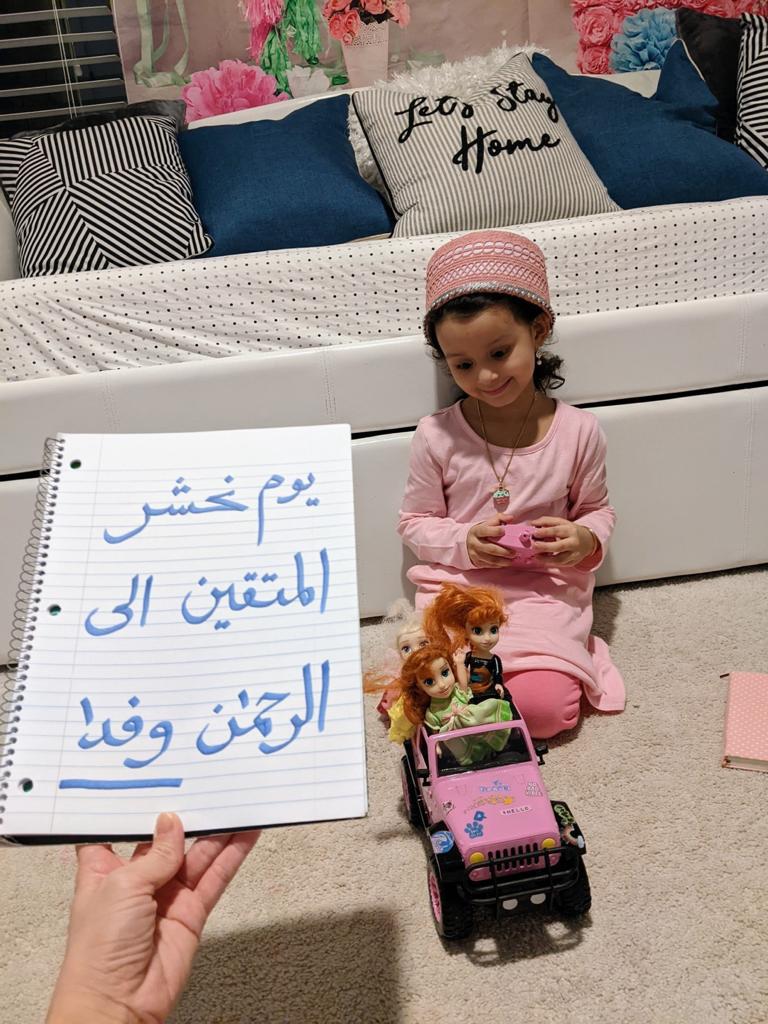 Let's Stay
Home
يوم نحشر
المتقين الى
الرحمٰن وفدا
HELLO